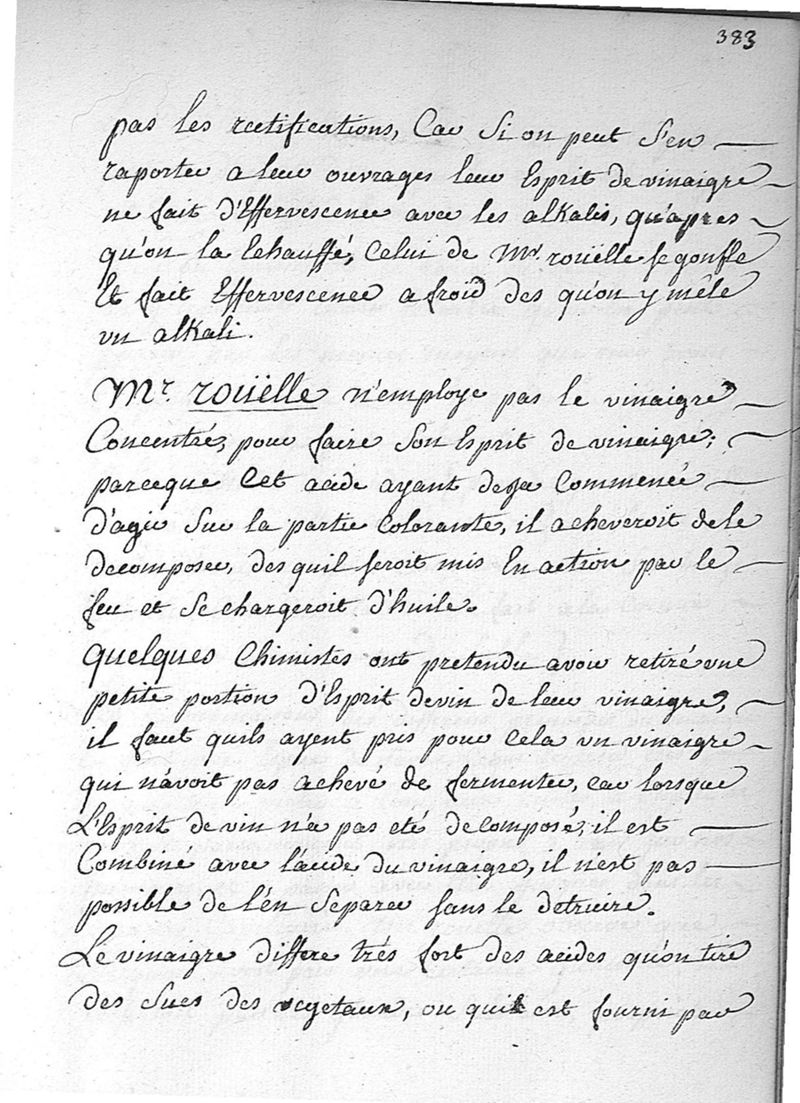 383
pas les rectifications, Car Si on peut S'en
raporter a leur ouvrages leur Esprit de vinaigre
ne fait d'Effervescence avec les alkalis, qu'apres
qu'on la Echauffé, Celui de Mr. roüelle se gonfle
Et fait Effervescence a froid des qu'on y mêle
un alkali.
Mr. roüelle n'employe pas le vinaigre
Concentré, pour faire Son Esprit de vinaigre;
parceque Cet acide ayant deja Commencé
d'agir Sur la partie Colorante, il acheveroit de le
decomposer, des quil seroit mis En action par le
feu et Se chargeroit d'huile.
Quelques Chimistes ont pretendu avoir retiré une
petite portion d'Esprit de vin de leur vinaigre,
il faut quils ayent pris pour Cela un vinaigre
qui n'avoit pas achevé de fermenter, car lorsque
L'Esprit de vin n'a pas eté decomposé, il est
Combiné avec l'acide du vinaigre, il n'est pas
possible de l'en Separer sans le detruire.
Le vinaigre differe trés fort des acides qu'on tire
des Sucs des vegetaux, ou qui est fourni par